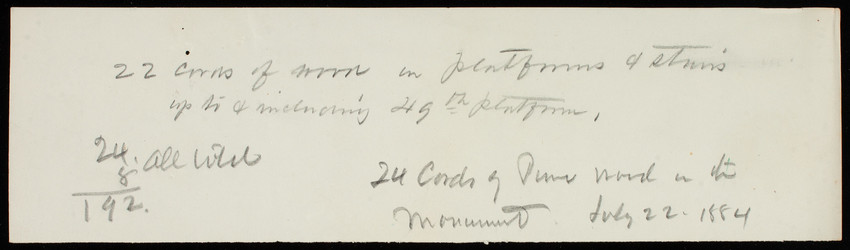 22 cords of wood in platforms & stairs
up to & including 49th platform,
24
8
192.
24 Cords of Pine wood in the
Monument July 22. 1884